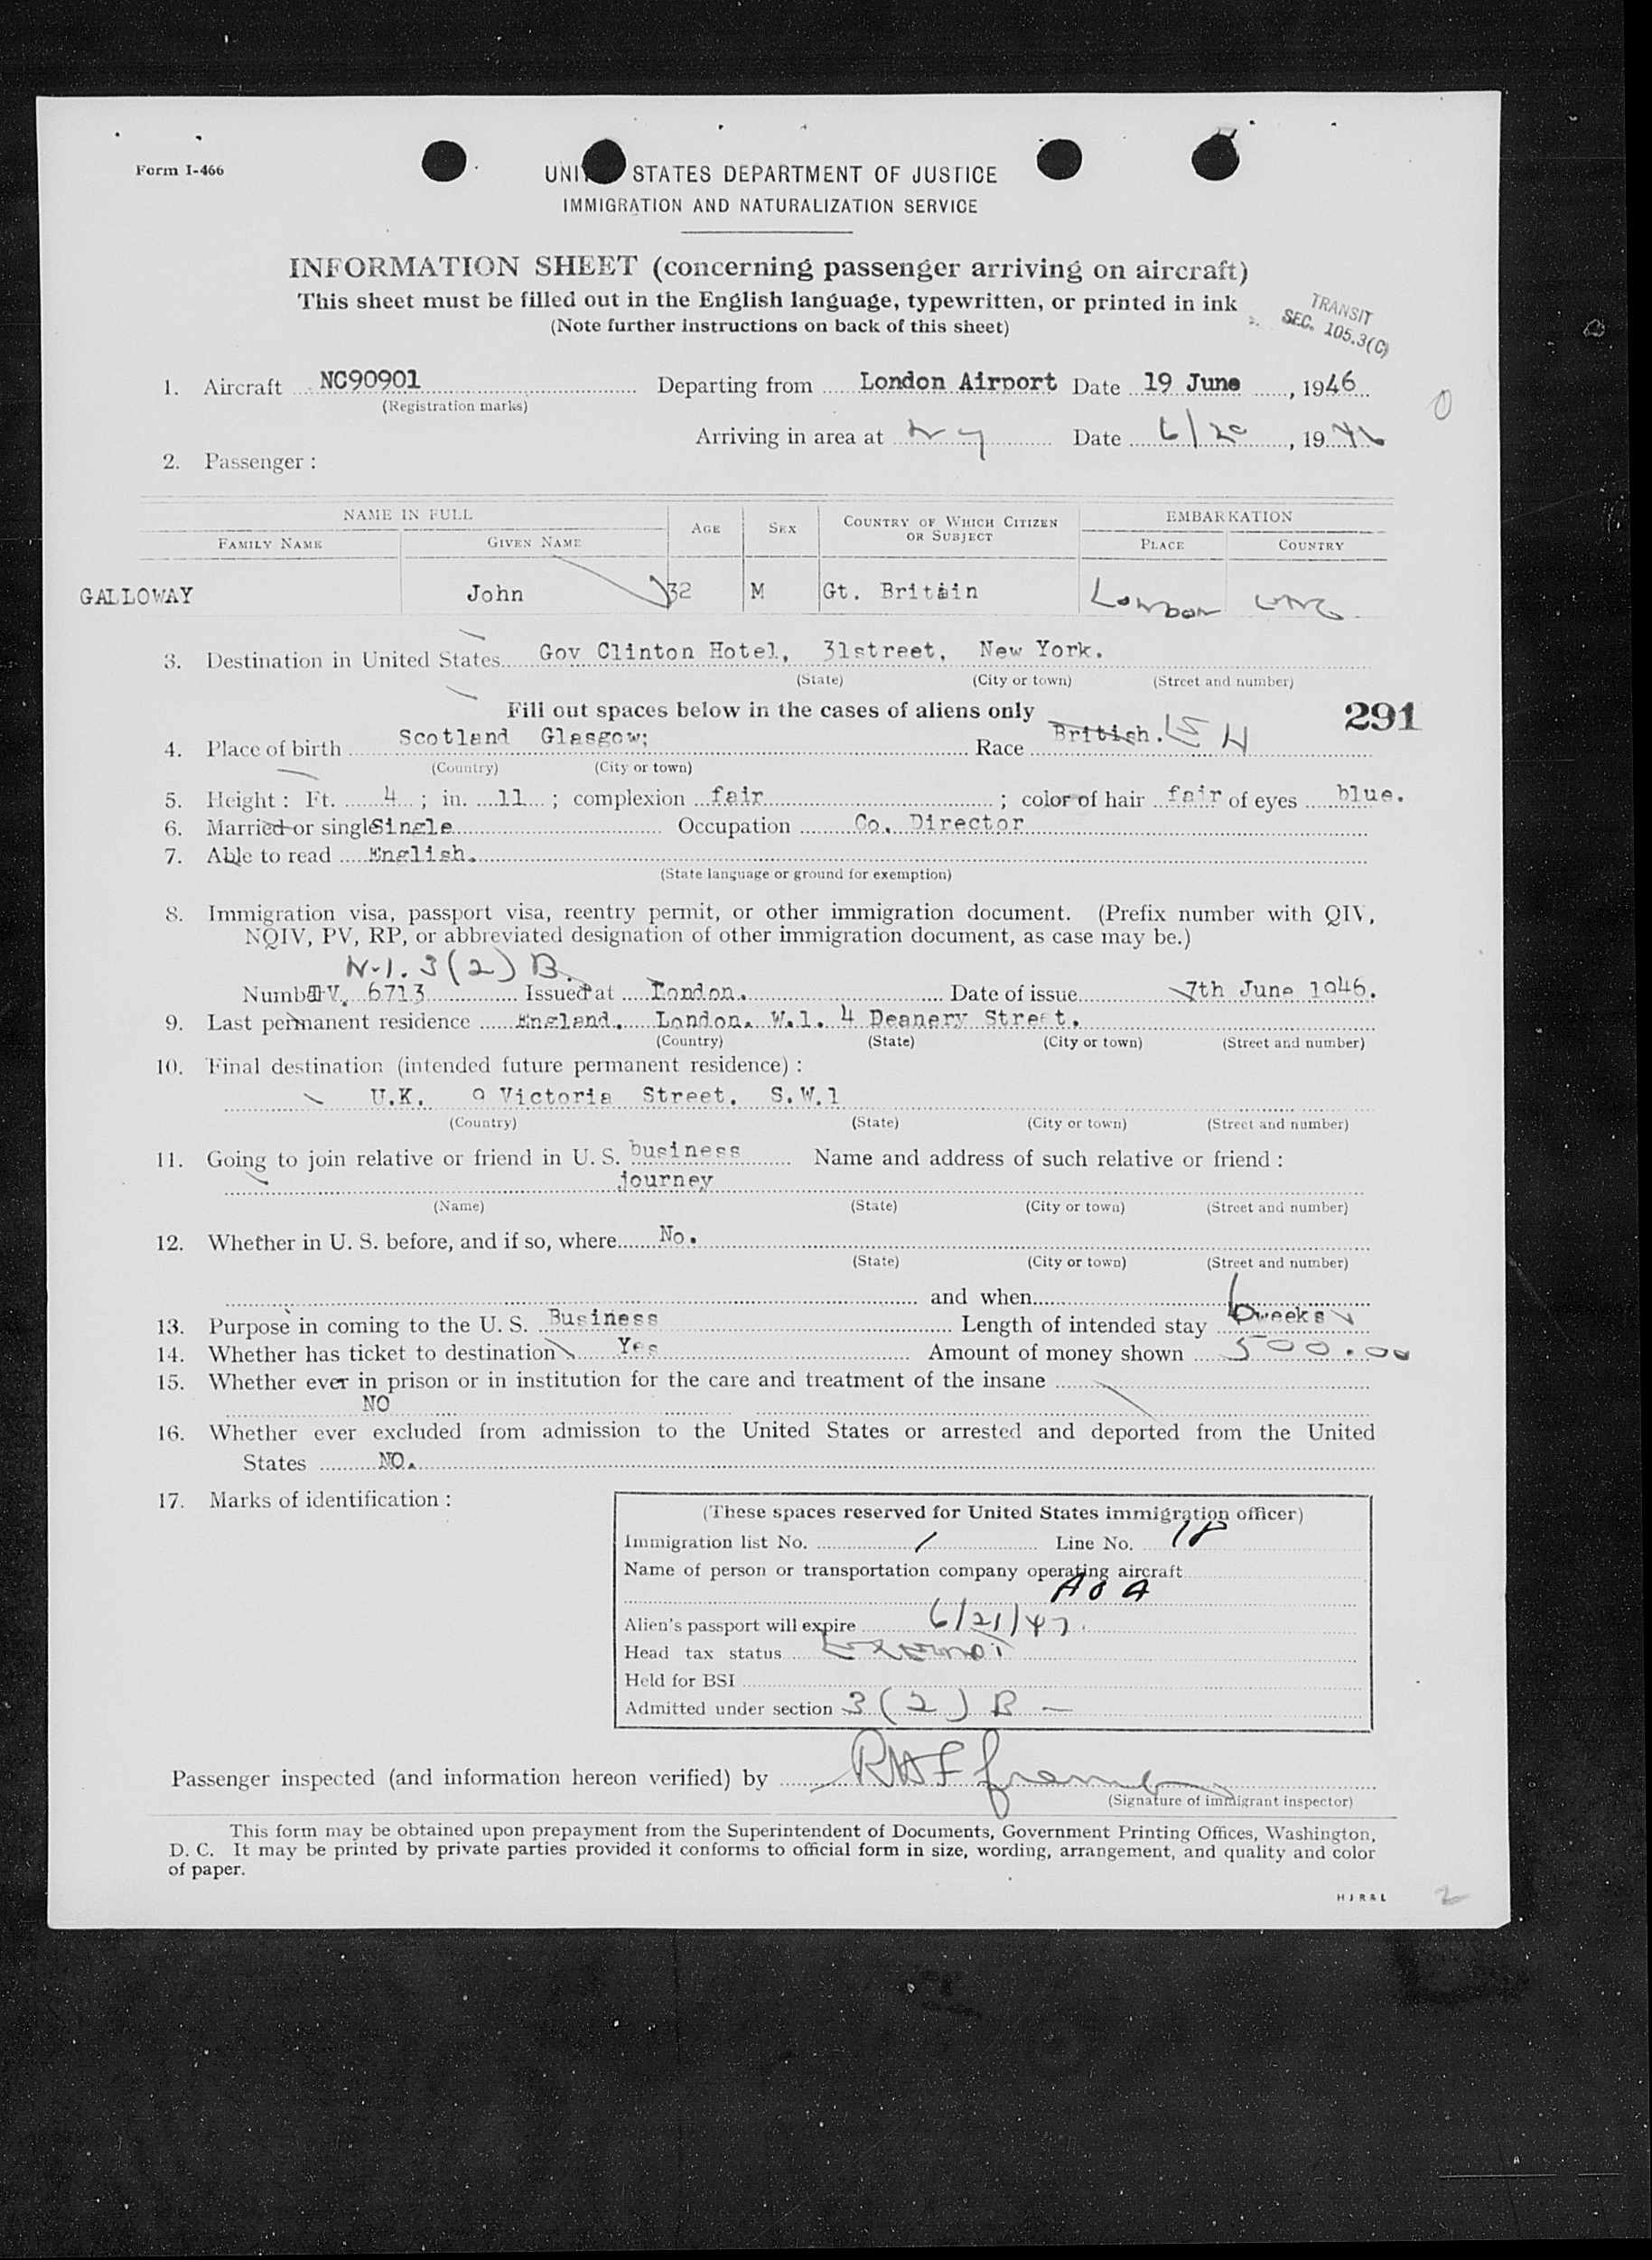 Form I-466
UNI STATES DEPARTMENT OF JUSTICE
IMMIGRATION AND NATURALIZATION SERVICE
INFORMATION SHEET (concerning passenger arriving on aircraft)
This sheet must be filled out in the English language, typewritten, or printed in ink
(Note further instructions on back of this sheet)
TRANSIT
SEC. 105.3(C)
1. Aircraft NC90901 Departing from London Airport Date 19 June, 1946
(Registration marks)
Arriving in area at NY Date 6/20, 1946
2. Passenger:
NAME IN FULL AGE SEX COUNTRY OF WHICH CITIZEN OR SUBJECT EMBARKATION
FAMILY NAME GIVEN NAME PLACE COUNTRY
GALLOWAY John 32 M Gt. Britain London ENG
3. Destination in United States Gov Clinton Hotel, 31street, New York.
(State) (City or town) (Street and number)
Fill out spaces below in the cases of aliens only
291
4. Place of birth Scotland Glasgow; Race British.
(Country) (City or town)
5. Height: Ft. 4; in. 11; complexion fair; color of hair fair of eyes blue.
6. Married or single Single Occupation Co. Director
7. Able to read English.
(State language or ground for exemption)
8. Immigration visa, passport visa, reentry permit, or other immigration document. (Prefix number with QIV,
NQIV, PV, RP, or abbreviated designation of other immigration document, as case may be.)
3(2) B.
Number V. 6713 Issued at London. Date of issue 7th June 1946.
9. Last permanent residence England. London. W.1. 4 Deanery Street.
(Country) (State) (City or town) (Street and number)
10. Final destination (intended future permanent residence):
U.K. 9 Victoria Street. S.W.1
(Country) (State) (City or town) (Street and number)
11. Going to join relative or friend in U. S. business Name and address of such relative or friend:
journey
(Name) (State) (City or town) (Street and number)
12. Whether in U. S. before, and if so, where No.
(State) (City or town) (Street and number)
and when
13. Purpose in coming to the U. S. Business Length of intended stay 6 weeks
14. Whether has ticket to destination Yes Amount of money shown 500.00
15. Whether ever in prison or in institution for the care and treatment of the insane
NO
16. Whether ever excluded from admission to the United States or arrested and deported from the United
States NO.
17. Marks of identification:
(These spaces reserved for United States immigration officer)
Immigration list No. 1 Line No. 18
Name of person or transportation company operating aircraft
AOA
Alien's passport will expire 6/21/47
Head tax status Exempt
Held for BSI
Admitted under section 3(2) B —
Passenger inspected (and information hereon verified) by
(Signature of immigrant inspector)
This form may be obtained upon prepayment from the Superintendent of Documents, Government Printing Offices, Washington,
D. C. It may be printed by private parties provided it conforms to official form in size, wording, arrangement, and quality and color
of paper.
HJR&L
2